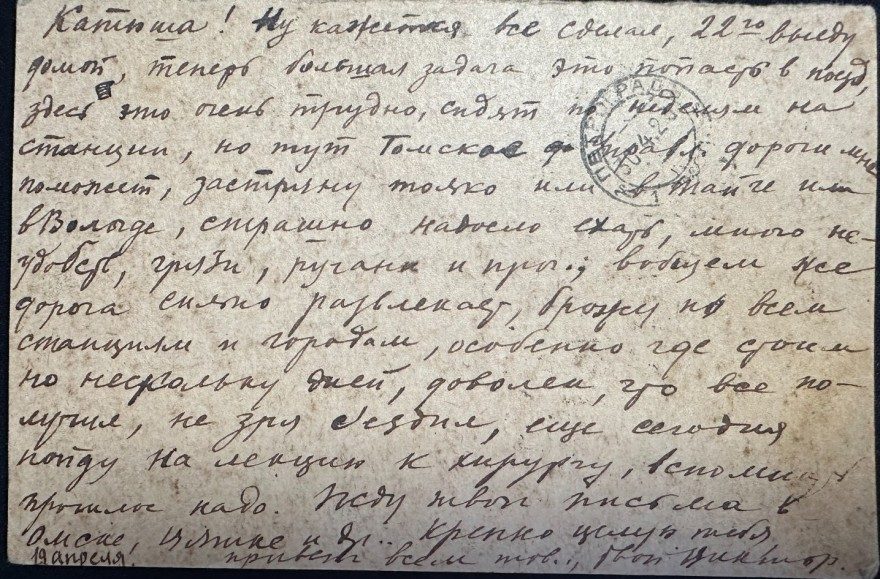 Катюша! Ну кажется все сделал, 22го выеду
домой, теперь большая задача это попасть в поезд,
здесь это очень трудно, сидят по неделям на
станции, но тут Томской дороги мне
поможет, застряну только или в тайге или
в Вологде, страшно надоело ехать, много не-
удобств, грязи, ругани и проч., вобщем же
дорога сильно развлекает, брожу по всем
станциям и городам, особенно где стоим
по нескольку дней, доволен, что все по-
лучил, не зря ездил, еще сегодня
пойду на лекцию к хирургу, вспомнить
прошлое надо. Жду твои письма в
Омске, и др.. Крепко целую тебя
19 апреля. привет всем тов., твой Виктор.
ПЕТРОГРАД
30.4.2